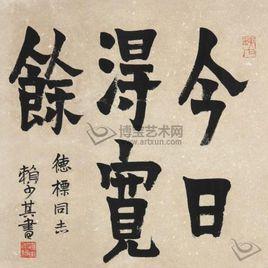 今日
得寬
餘
德標同志
賴少其書
博宝艺术网
www.artxun.com